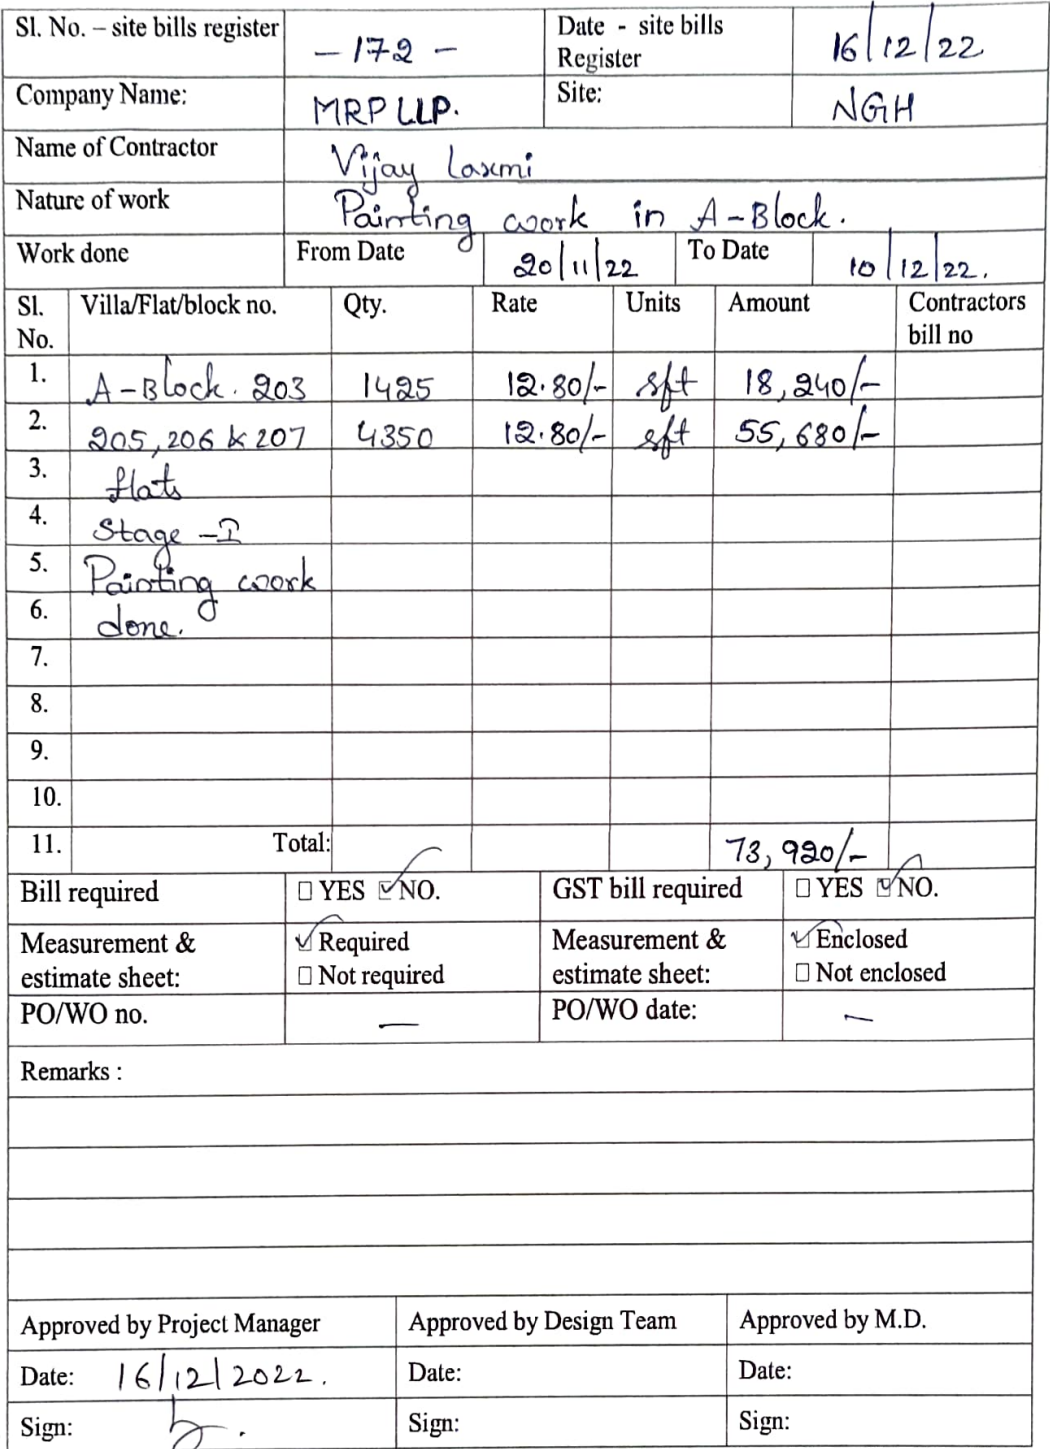 Sl. No. – site bills register – 172 – Date - site bills Register 16/12/22
Company Name: MRP LLP. Site: NGH
Name of Contractor Vijay Laxmi
Nature of work Painting work in A-Block.
Work done From Date 20/11/22 To Date 10/12/22.
Sl. No. Villa/Flat/block no. Qty. Rate Units Amount Contractors bill no
1. A-Block. 203 1425 12.80/- sft 18,240/-
2. 205,206 & 207 4350 12.80/- sft 55,680/-
3. flats
4. Stage -I
5. Painting work
6. done.
7.
8.
9.
10.
11. Total: 73,920/-
Bill required ☐ YES ☑ NO. GST bill required ☐ YES ☑ NO.
Measurement & estimate sheet: ☑ Required ☐ Not required Measurement & estimate sheet: ☑ Enclosed ☐ Not enclosed
PO/WO no. — PO/WO date: —
Remarks :
Approved by Project Manager Approved by Design Team Approved by M.D.
Date: 16/12/2022. Date: Date:
Sign: Sign: Sign: